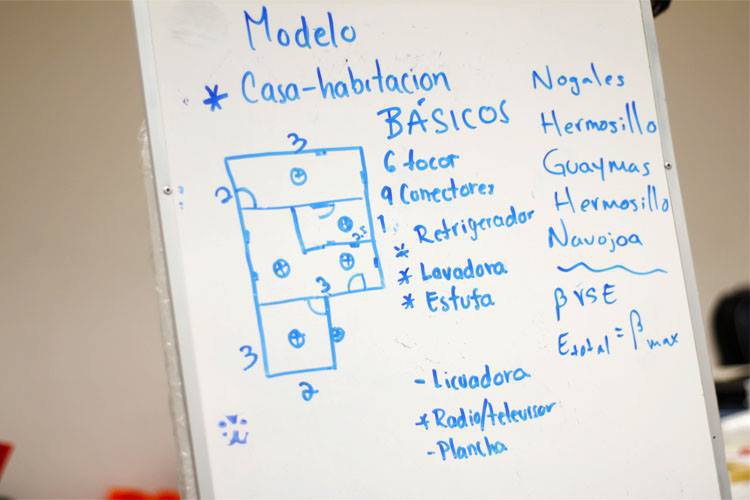 Modelo
* Casa-habitacion
BÁSICOS
6 focor
9 Conectores
* Refrigerador
* Lavadora
* Estufa
- Licuadora
* Radio/televisor
- Plancha
Nogales
Hermosillo
Guaymas
Hermosillo
Navojoa
β VS E
Etotal = βmax
3
2
1
2.5
3
3
2